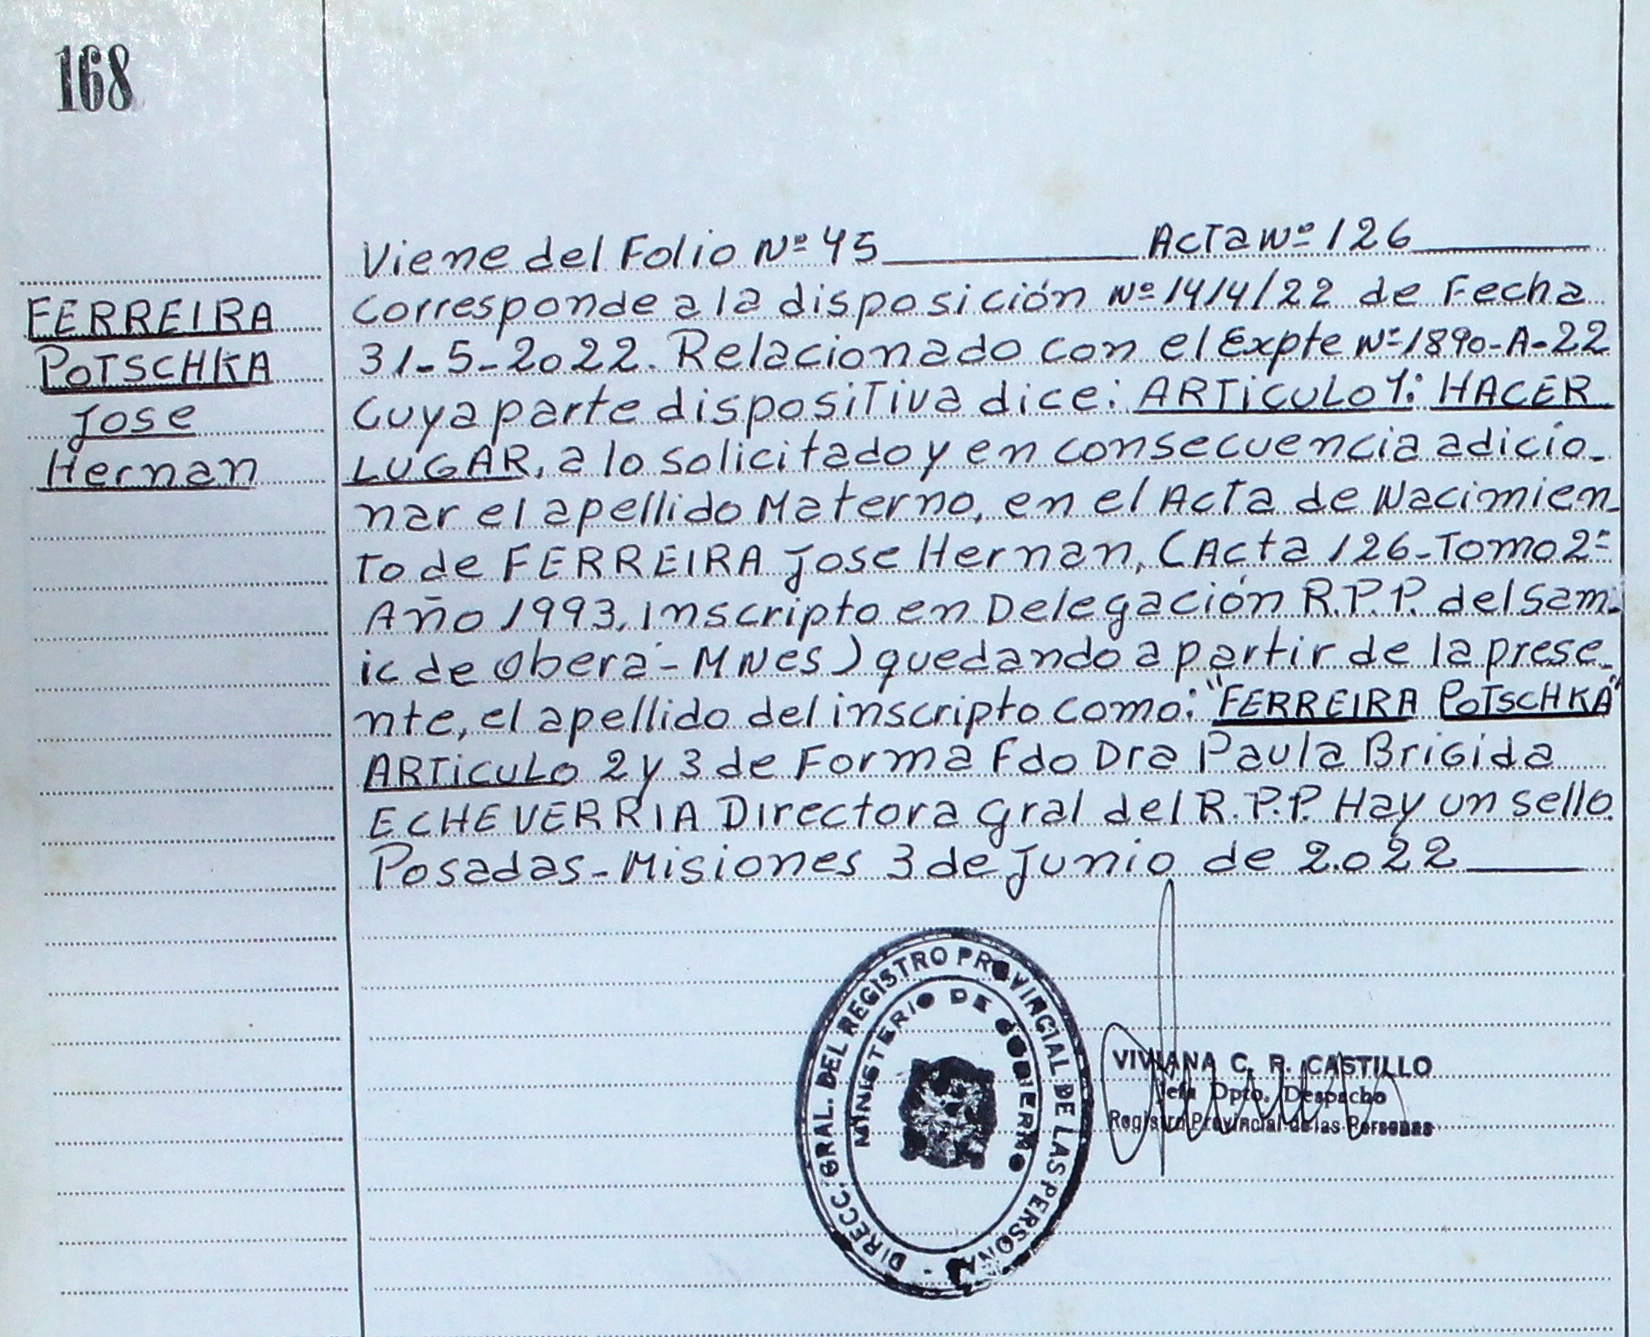 168
FERREIRA
POTSCHKA
Jose
Hernan
Viene del Folio Nº 45 ActaNº 126
Corresponde a la disposición Nº 1414/22 de Fecha
31-5-2022. Relacionado con el Expte Nº 1890-A-22
Cuya parte dispositiva dice: ARTICULO 1: HACER
LUGAR, a lo solicitado y en consecuencia adicio-
nar el apellido Materno, en el Acta de Nacimien-
to de FERREIRA Jose Hernan, (Acta 126-Tomo 2º
Año 1993, inscripto en Delegación R.P.P. del Sam-
ic de Oberá-MNes) quedando a partir de la prese-
nte, el apellido del inscripto como: "FERREIRA POTSCHKA"
ARTICULO 2 y 3 de Forma Fdo Dra Paula Brigida
ECHEVERRIA Directora Gral del R.P.P. Hay un sello.
Posadas-Misiones 3 de Junio de 2.022
DIRECC. GRAL. DEL REGISTRO PROVINCIAL DE LAS PERSONAS
MINISTERIO DE GOBIERNO
VIVIANA C. R. CASTILLO
Jefa Dpto. Despacho
Registro Provincial de las Personas